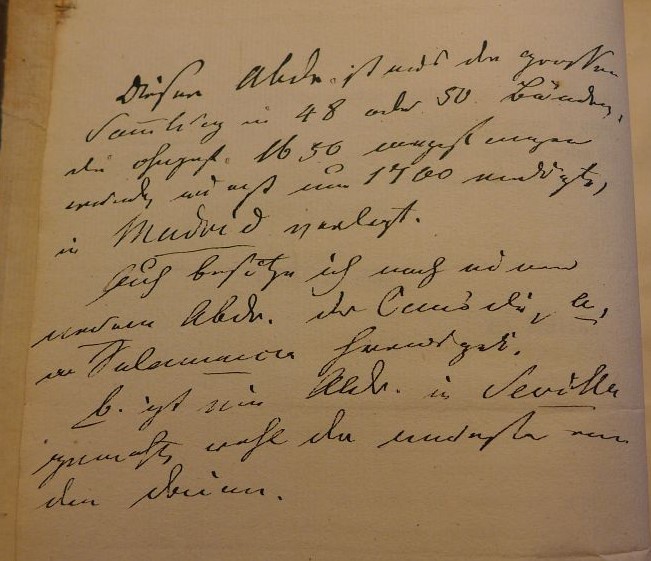 Dieser Abdr. ist aus der grossen
Sammlung in 48 oder 50 Bänden,
die ohngef. 1650 angefangen
wurde, und erst um 1700 endigte,
in Madrid verlegt.
Auch besitze ich noch einen
andern Abdr. der Comödie, a,
in Salamanca
b. ist ein Abdr. in Sevilla
gemacht, wohl der neueste von
den dreien.